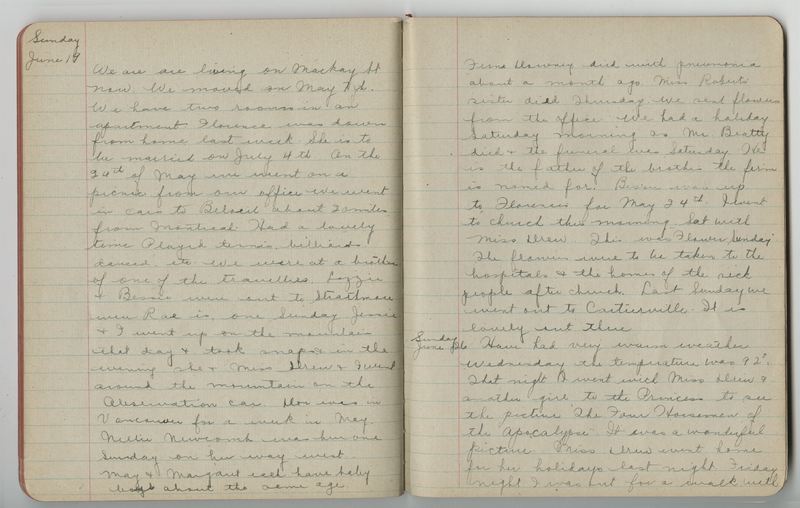 Sunday
June 19
We are are living on Mackay St
now. We moved on May 7th.
We have two rooms in an
apartment Florence was down
from home last week. She is to
be married on July 4th On the
24th of May we went on a
picnic from our office We went
in cars to Beloeil about 20 miles
from Montreal Had a lovely
time Played tennis, billiards
danced, etc We were at a brother
of one of the travellers. Lizzie
& Bessie were out to Strathmore
were Rae is, one Sunday Jessie
& I went up on the mountain
that day & took snaps in the
evening she & Miss Drew & I went
around the mountain on the
Observation car. was in
Vancouver for a week in May
Nellie Newcomb was here one
Sunday on her way west
May & Margaret each have baby
boys about the same age
Downey died with pneumonia
about a month ago Miss Roberts
sister died Thursday We sent flowers
from the office We had a holiday
Saturday morning as Mr. Beatty
died & the funeral was Saturday He
is the father of the brother the firm
is named for. Bessie was up
to Florence's for May 24th. I went
to church this morning. Sat with
Miss Drew. This was Flower Sunday
The flowers were to be taken to the
hospitals & the homes of the sick
people after church. Last Sunday we
went out to Cartierville. It is
lovely out there
Sunday
June 26 Have had very warm weather
Wednesday the temperature was 92°.
That night I went with Miss Drew &
another girl to the Princess to see
the picture "The Four Horsemen of
the Apocalypse" It was a wonderful
picture. Miss Drew went home
for her holidays last night. Friday
night I was out for a walk with